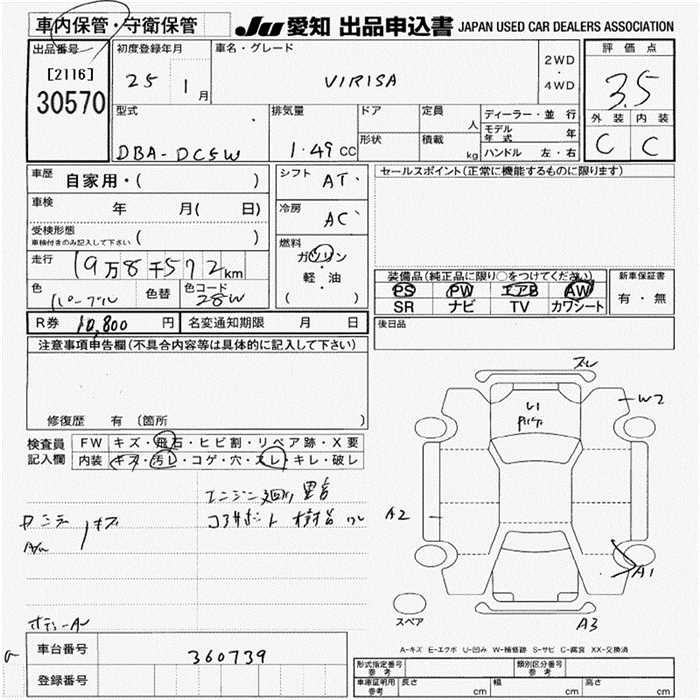 車内保管・守衛保管 JU 愛知 出品申込書 JAPAN USED CAR DEALERS ASSOCIATION
出品番号 初度登録年月 車名・グレード 評価点
[2116] 25 1月 VIRISA 2WD・4WD 3.5
30570
型式 排気量 ドア 定員 人 ディーラー・並行 外装 内装
モデル年式 年
DBA-DC5W 1.49CC 形状 積載 kg ハンドル 左・右 C C
車歴 自家用・( ) シフト AT セールスポイント(正常に機能するものに限ります)
車検 年 月( 日) 冷房 AC
受検形態
車検付きのみ記入して下さい ( ) 燃料
走行 19万8千572km ガソリン
軽・油
( )
装備品(純正品に限り○をつけてください) 新車保証書
色 パープル 色替 色コード 28W PS PW エアB AW 有・無
SR ナビ TV カワシート
R券 10,800円 名変通知期限 月 日 後日品
注意事項申告欄(不具合内容等は具体的に記入して下さい)
修復歴 有 〔箇所 )
検査員記入欄 FW キズ・飛石・ヒビ割・リペア跡・X要
内装 キズ・汚レ・コゲ・穴・スレ・キレ・破レ
ズレ
U1
W2
A2
A1
A3
スペア
A-キズ E-エクボ U-凹み W-補修跡 S-サビ C-腐食 XX-交換済
車台番号 360739
登録番号
形式指定番号 参考 類別区分番号 参考
車庫証明用 参考 長さ cm 幅 cm 高さ cm